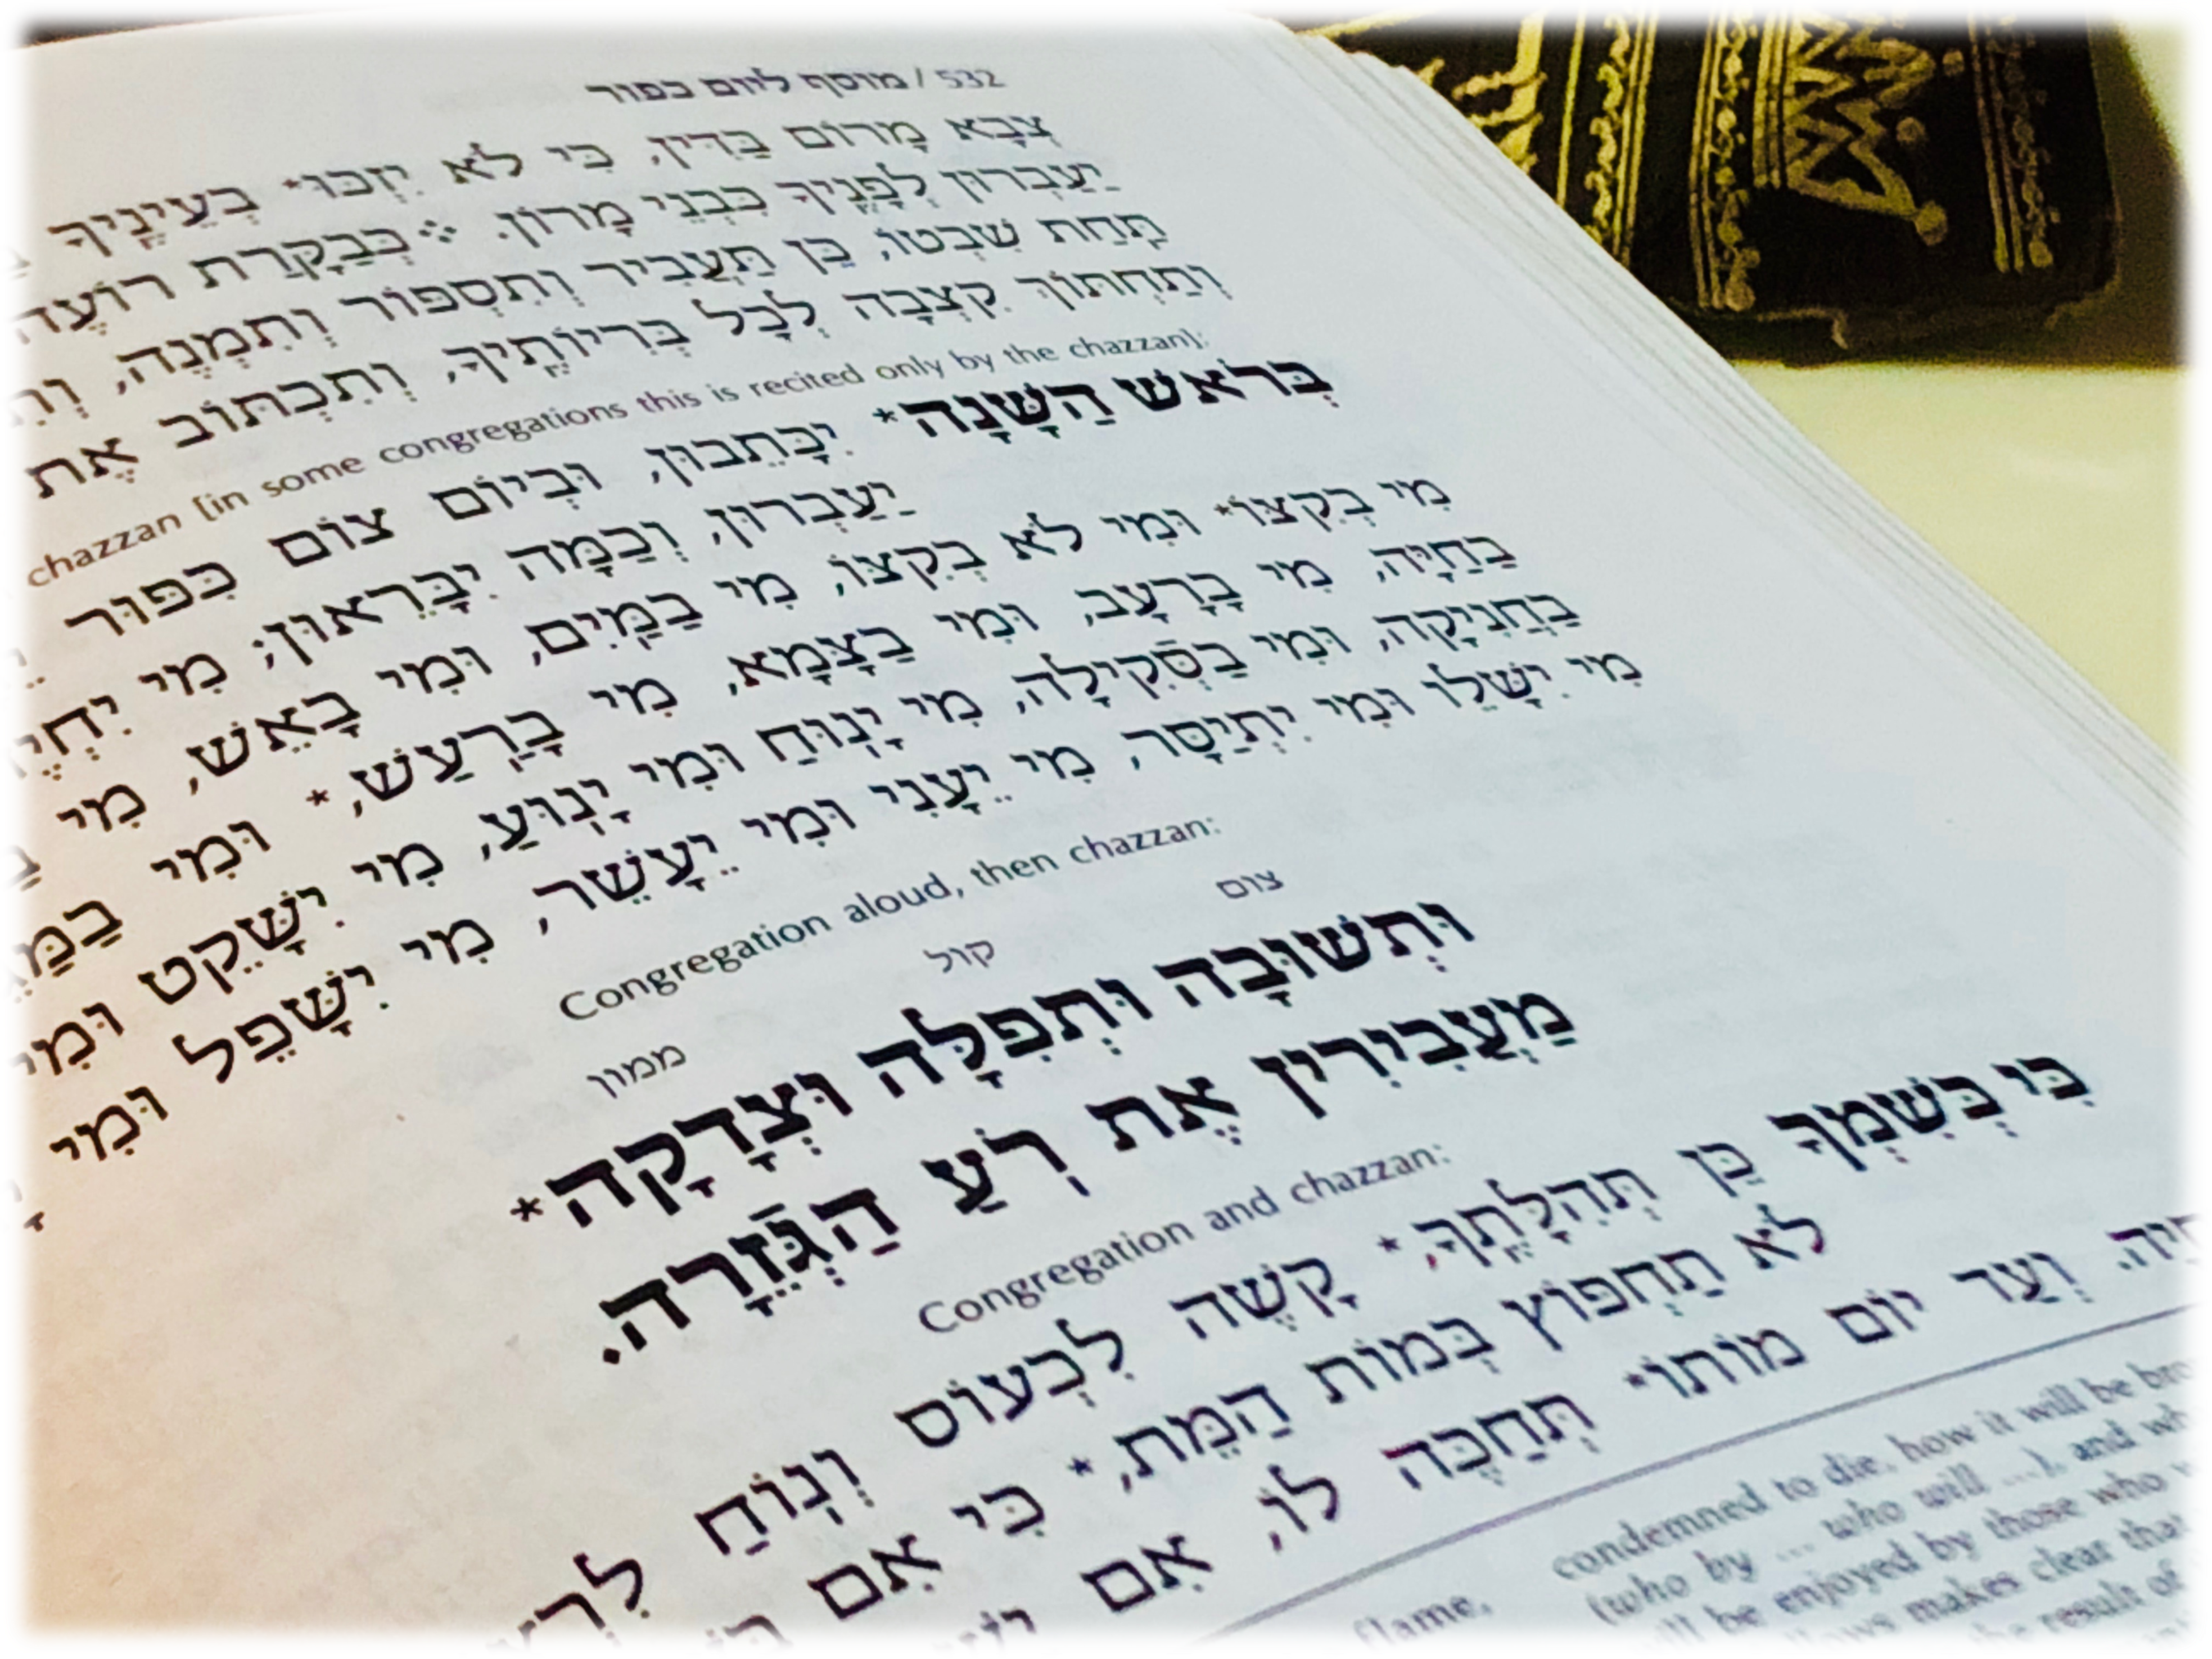 532 / מוסף ליום כפור
צְבָא מָרוֹם בַּדִּין, כִּי לֹא יִזְכּוּ* בְעֵינֶיךָ
יַעַבְרוּן לְפָנֶיךָ כִּבְנֵי מָרוֹן. ❖ כְּבַקָּרַת רוֹעֶה
תַּחַת שִׁבְטוֹ, כֵּן תַּעֲבִיר וְתִסְפּוֹר וְתִמְנֶה,
וְתַחְתּוֹךְ קִצְבָה לְכָל בְּרִיּוֹתֶיךָ, וְתִכְתּוֹב אֶת
chazzan [in some congregations this is recited only by the chazzan]:
בְּרֹאשׁ הַשָּׁנָה* יִכָּתֵבוּן, וּבְיוֹם צוֹם כִּפּוּר
יַעַבְרוּן, וְכַמָּה יִבָּרֵאוּן; מִי
מִי בְקִצּוֹ* וּמִי לֹא בְקִצּוֹ, מִי בַמַּיִם, וּמִי בָאֵשׁ, מִי
בַחַיָּה, מִי בָרָעָב, וּמִי בַצָּמָא, מִי בָרַעַשׁ,* וּמִי
בַחֲנִיקָה, וּמִי בַסְּקִילָה, מִי יָנוּחַ וּמִי יָנְוּעַ, מִי יִשָּׁקֵט וּמִי
מִי יִשָּׁלֵו וּמִי יִתְיַסָּר, מִי יֵעָנִי וּמִי יֵעָשֵׁר, מִי יִשָּׁפֵל וּמִי
Congregation aloud, then chazzan:
צום קול ממון
וּתְשׁוּבָה וּתְפִלָּה וּצְדָקָה*
מַעֲבִירִין אֶת רֹעַ הַגְּזֵרָה.
Congregation and chazzan:
כִּי כְּשִׁמְךָ כֵּן תְּהִלָּתֶךָ,* קָשֶׁה לִכְעוֹס וְנוֹחַ
לֹא תַחְפּוֹץ בְּמוֹת הַמֵּת,* כִּי אִם
וְעַד יוֹם מוֹתוֹ* תְּחַכֶּה לוֹ, אִם
flame,
condemned to die, how it will be
(who by ... who will ...), and
be enjoyed by those who
makes clear that
result of